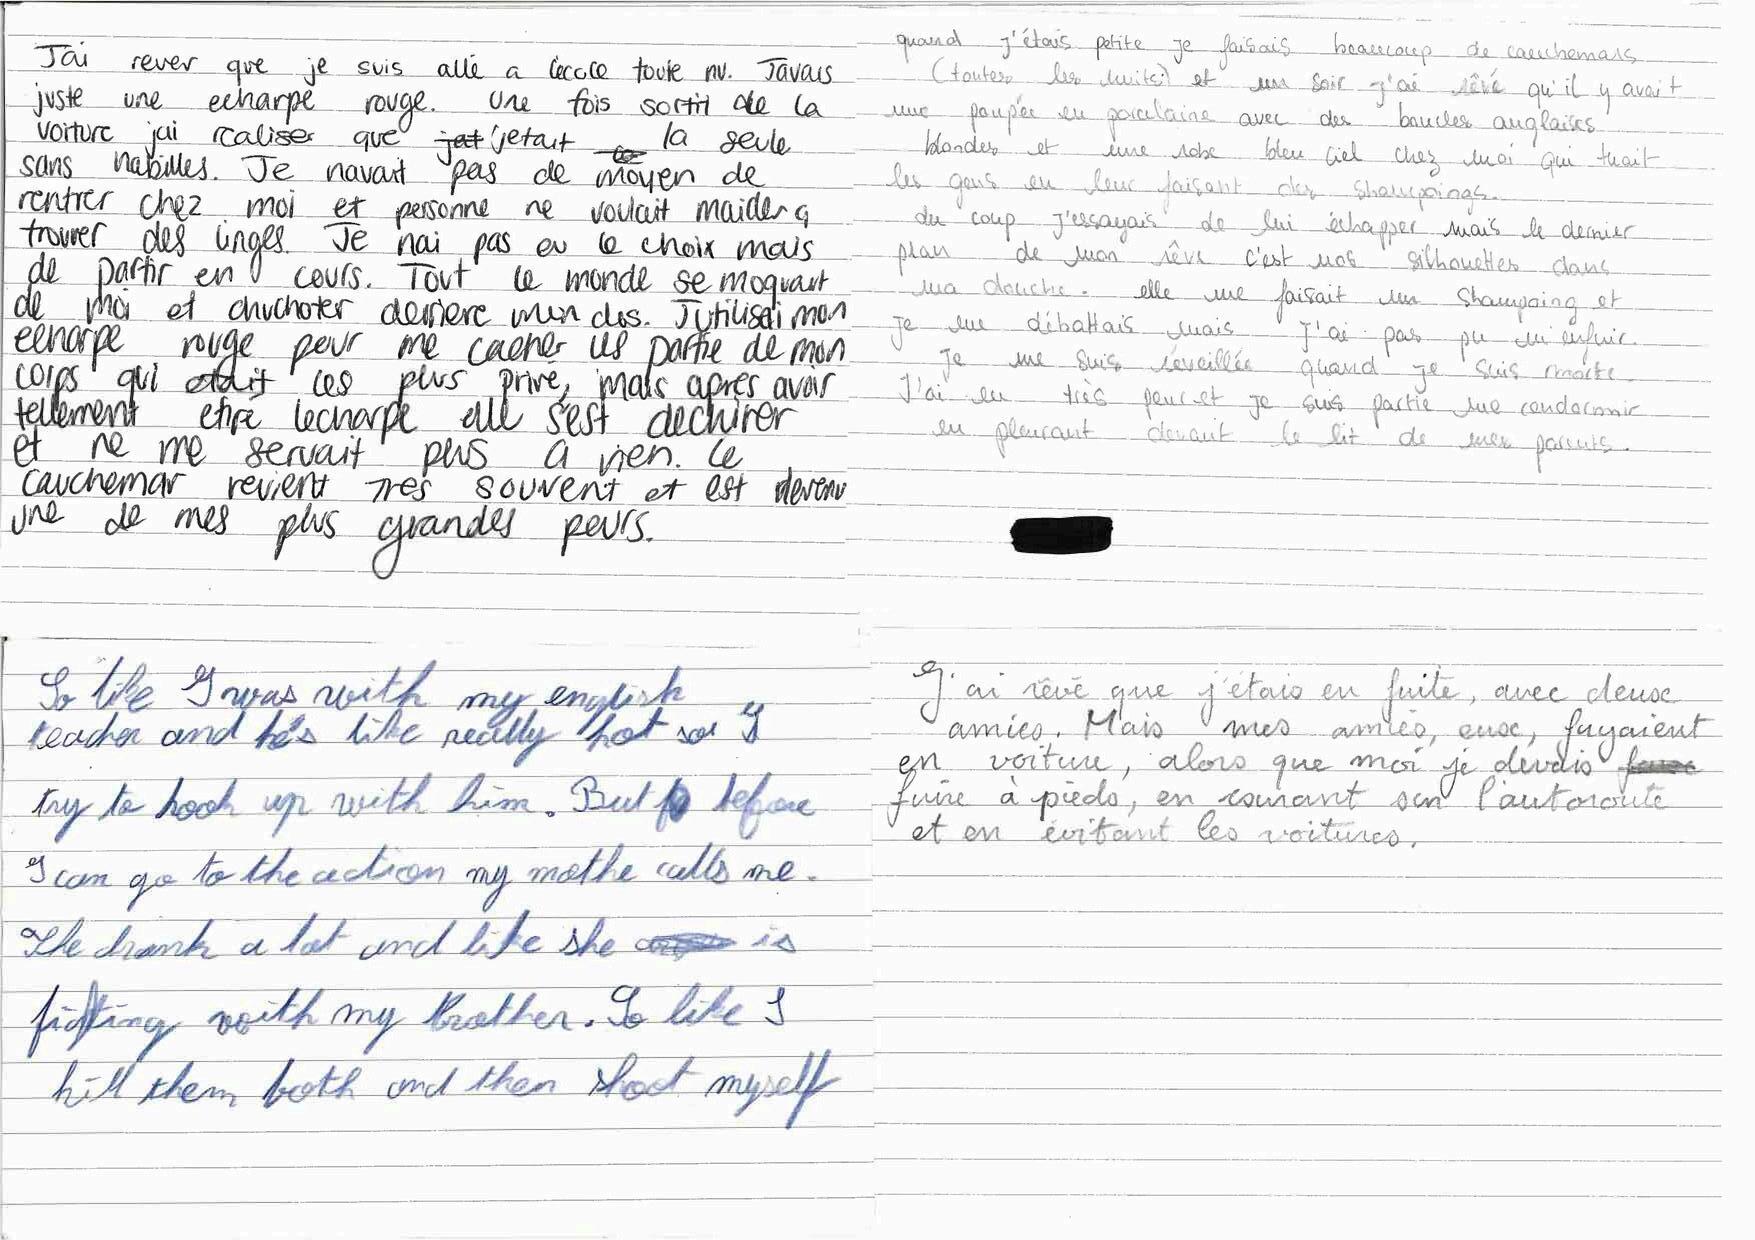 J'ai rever que je suis allé a lecole toute nu. Javais
juste une echarpe rouge. Une fois sortit de la
voiture jai realiser que j'etait la seule
sans habilles. Je navait pas de moyen de
rentrer chez moi et personne ne voulait maider a
trouver des linges. Je nai pas eu le choix mais
de partir en cours. Tout le monde se moquait
de moi et chuchoter derriere mon dos. J'utilisai mon
echarpe rouge pour me cacher les partie de mon
corps qui etait les plus privé, mais apres avoir
tellement etire lecharpe elle s'est dechirer
et ne me servait plus a rien. Ce
cauchemar revient tres souvent et est devenu
une de mes plus grandes peurs.
quand j'étais petite je faisais beaucoup de cauchemars
(toutes les nuits) et un soir j'ai rêvé qu'il y avait
une poupée en porcelaine avec des boucles anglaises
blondes et une robe bleu ciel chez moi qui tuait
les gens en leur faisant des shampoings.
du coup j'essayais de lui échapper mais le dernier
plan de mon rêve c'est nos silhouettes dans
ma douche. elle me faisait un shampoing et
je me débattais mais j'ai pas pu m'enfuir.
je me suis réveillée quand je suis morte.
J'ai eu très peur et je suis partie me rendormir
en pleurant devant le lit de mes parents.
So like I was with my english
teacher and he's like really hot so I
try to hook up with him. But before
I can go to the action my mothe calls me.
She drank a lot and like she is
fighting with my brother. So like I
kill them both and then shoot myself
J'ai rêvé que j'étais en fuite, avec deux
amies. Mais mes amies, eux, fuyaient
en voiture, alors que moi je devais
fuire à pieds, en courant sur l'autoroute
et en évitant les voitures.